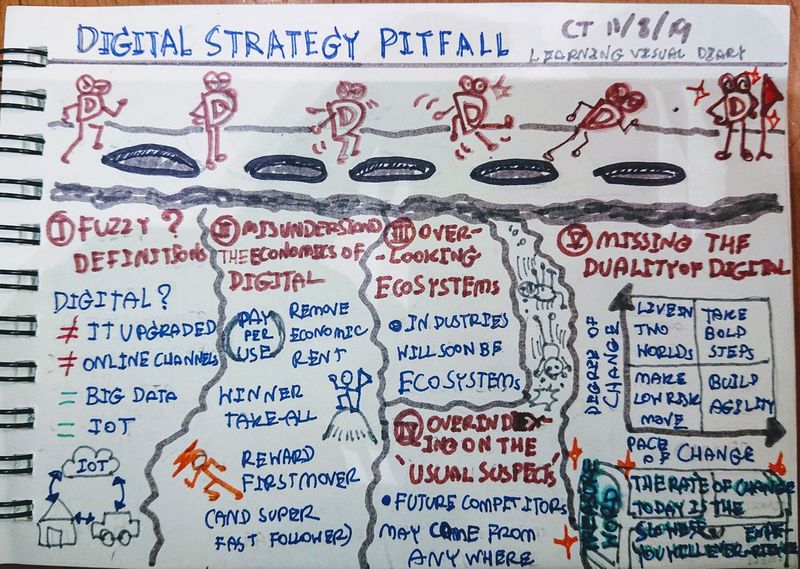 DIGITAL STRATEGY PITFALL
CT 11/8/19
LEARNING VISUAL DIARY
D
D
D
D
D
D
I FUZZY ?
DEFINITIONS
DIGITAL?
≠ IT UPGRADED
≠ ONLINE CHANNELS
= BIG DATA
= IOT
IOT
II MISUNDERSTAND
THE ECONOMICS OF
DIGITAL
PAY
PER
USE
REMOVE
ECONOMIC
RENT
WINNER
TAKE-ALL
REWARD
FIRST MOVER
(AND SUPER
FAST FOLLOWER)
III OVER-
-LOOKING
ECOSYSTEMS
INDUSTRIES
WILL SOON BE
ECOSYSTEMS
IV OVERINDEX-
ING ON THE
'USUAL SUSPECTS'
FUTURE COMPETITORS
MAY COME FROM
ANY WHERE
V MISSING THE
DUALITY OF DIGITAL
DEGREE OF
CHANGE
LIVE IN
TWO
WORLDS
TAKE
BOLD
STEPS
MAKE
LOW RISK
MOVE
BUILD
AGILITY
PACE
OF CHANGE
TREASURE
WORD
THE RATE OF CHANGE
TODAY IS THE
SLOWEST
YOU WILL EVER